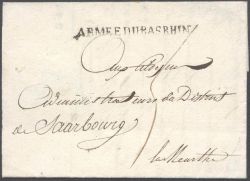 ARMEE DU BAS RHIN
Aux Citoyens
Administrateurs du District
de Saarbourg
la Meurthe